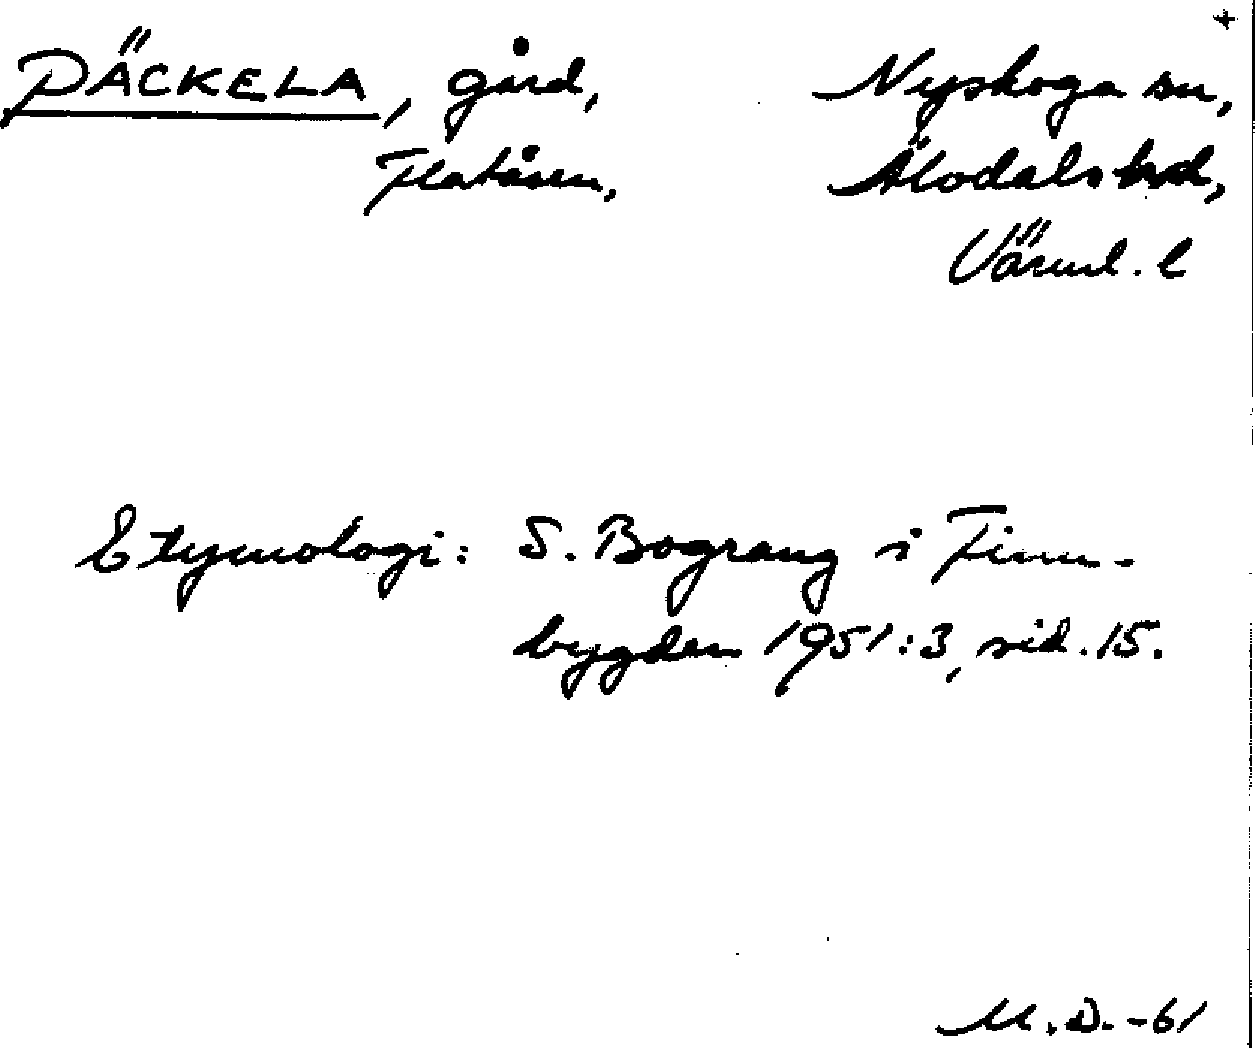 +
PÄCKELA, gård, Nyskoga sn,
Flatåsen, Älvdals hrd,
Värml. l
Etymologi: S. Bograng i Finn-
bygden 1951:3, sid. 15.
M. D. -61